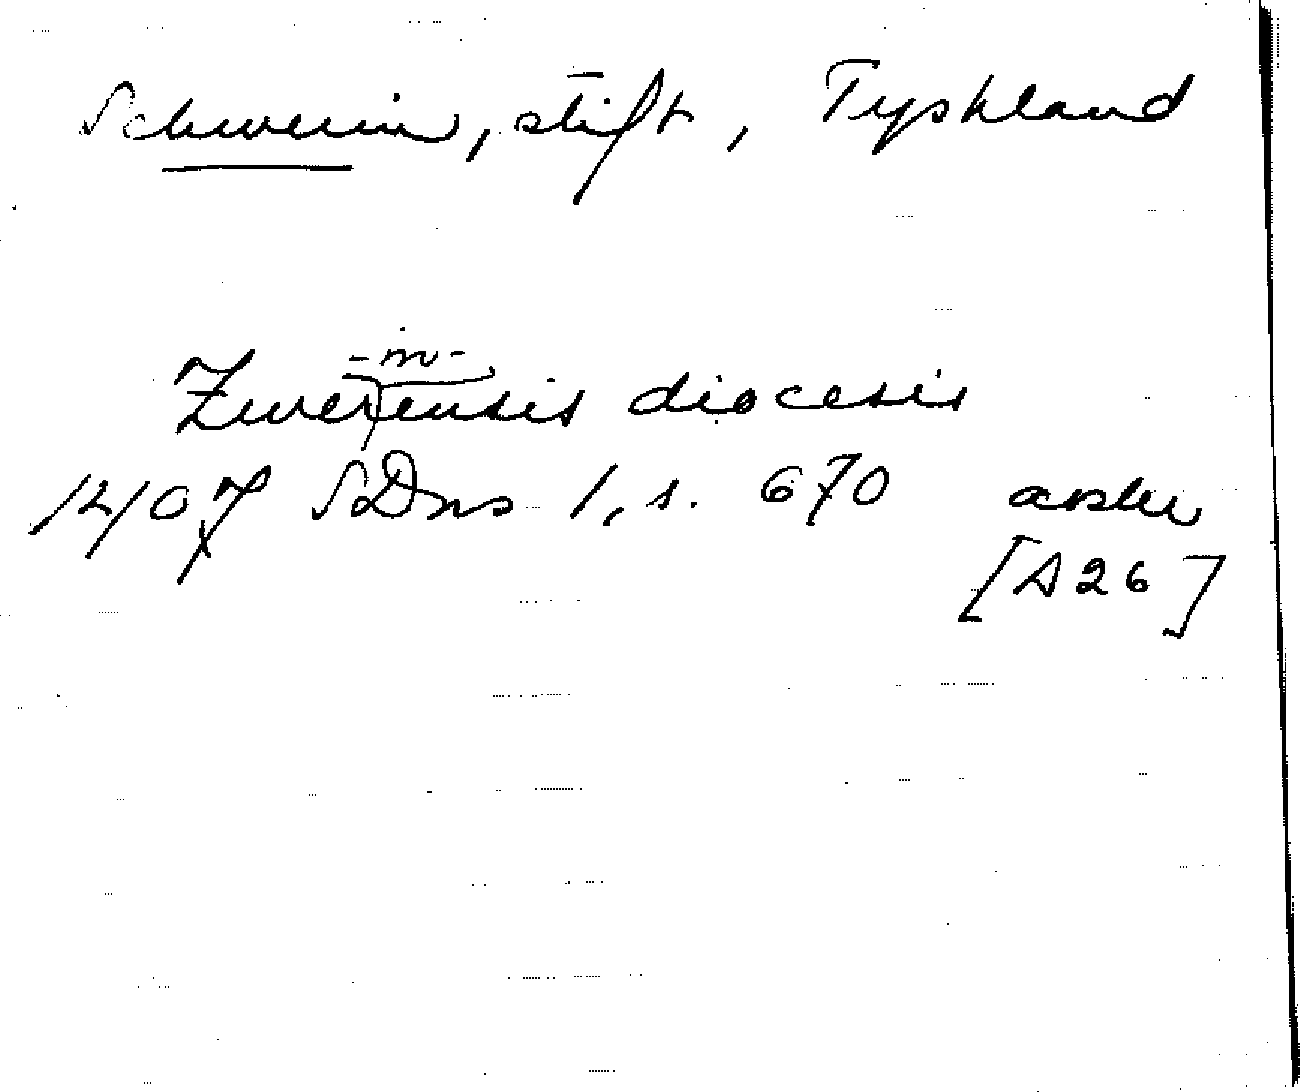 Schwerin, stift, Tyskland
-m-
Zwerensis diocesis
1407 SDns 1, s. 670 avskr
[A26]